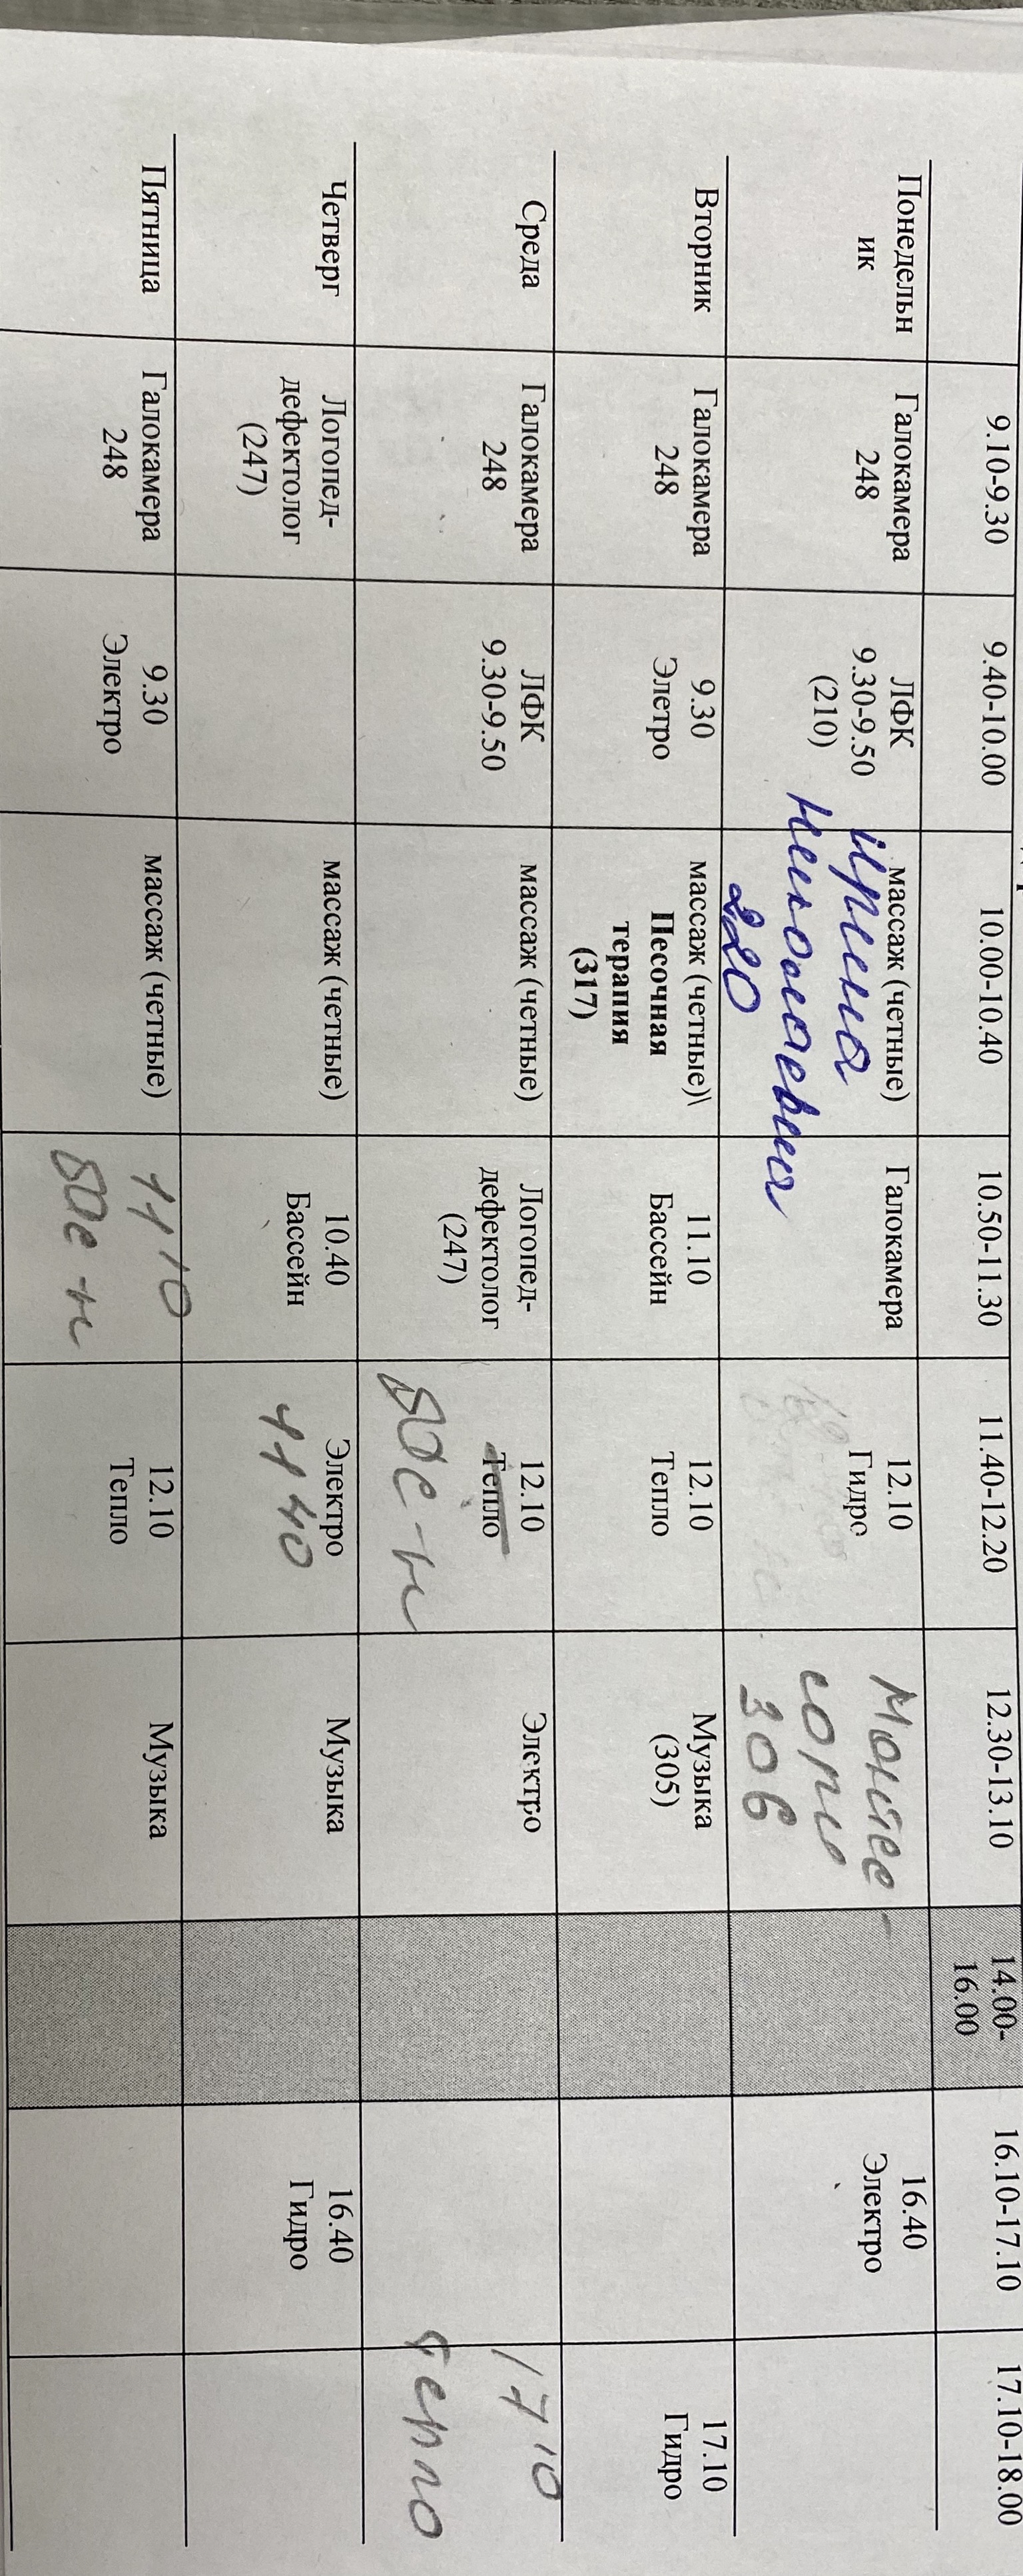 9.10-9.30
9.40-10.00
10.00-10.40
10.50-11.30
11.40-12.20
12.30-13.10
14.00-
16.00
16.10-17.10
17.10-18.00
Понедельн
ик
Галокамера
248
ЛФК
9.30-9.50
(210)
массаж (четные)
Ирина
Николаевна
220
Галокамера
12.10
Гидро
Монтес-
сори
306
16.40
Электро
Вторник
Галокамера
248
9.30
Элетро
массаж (четные)\
Песочная
терапия
(317)
11.10
Бассейн
12.10
Тепло
Музыка
(305)
17.10
Гидро
Среда
Галокамера
248
ЛФК
9.30-9.50
массаж (четные)
Логопед-
дефектолог
(247)
12.10
Тепло
Бас-н
Электро
17 10
тепло
Четверг
Логопед-
дефектолог
(247)
массаж (четные)
10.40
Бассейн
Электро
11 40
Музыка
16.40
Гидро
Пятница
Галокамера
248
9.30
Электро
массаж (четные)
11 10
Бас-н
12.10
Тепло
Музыка